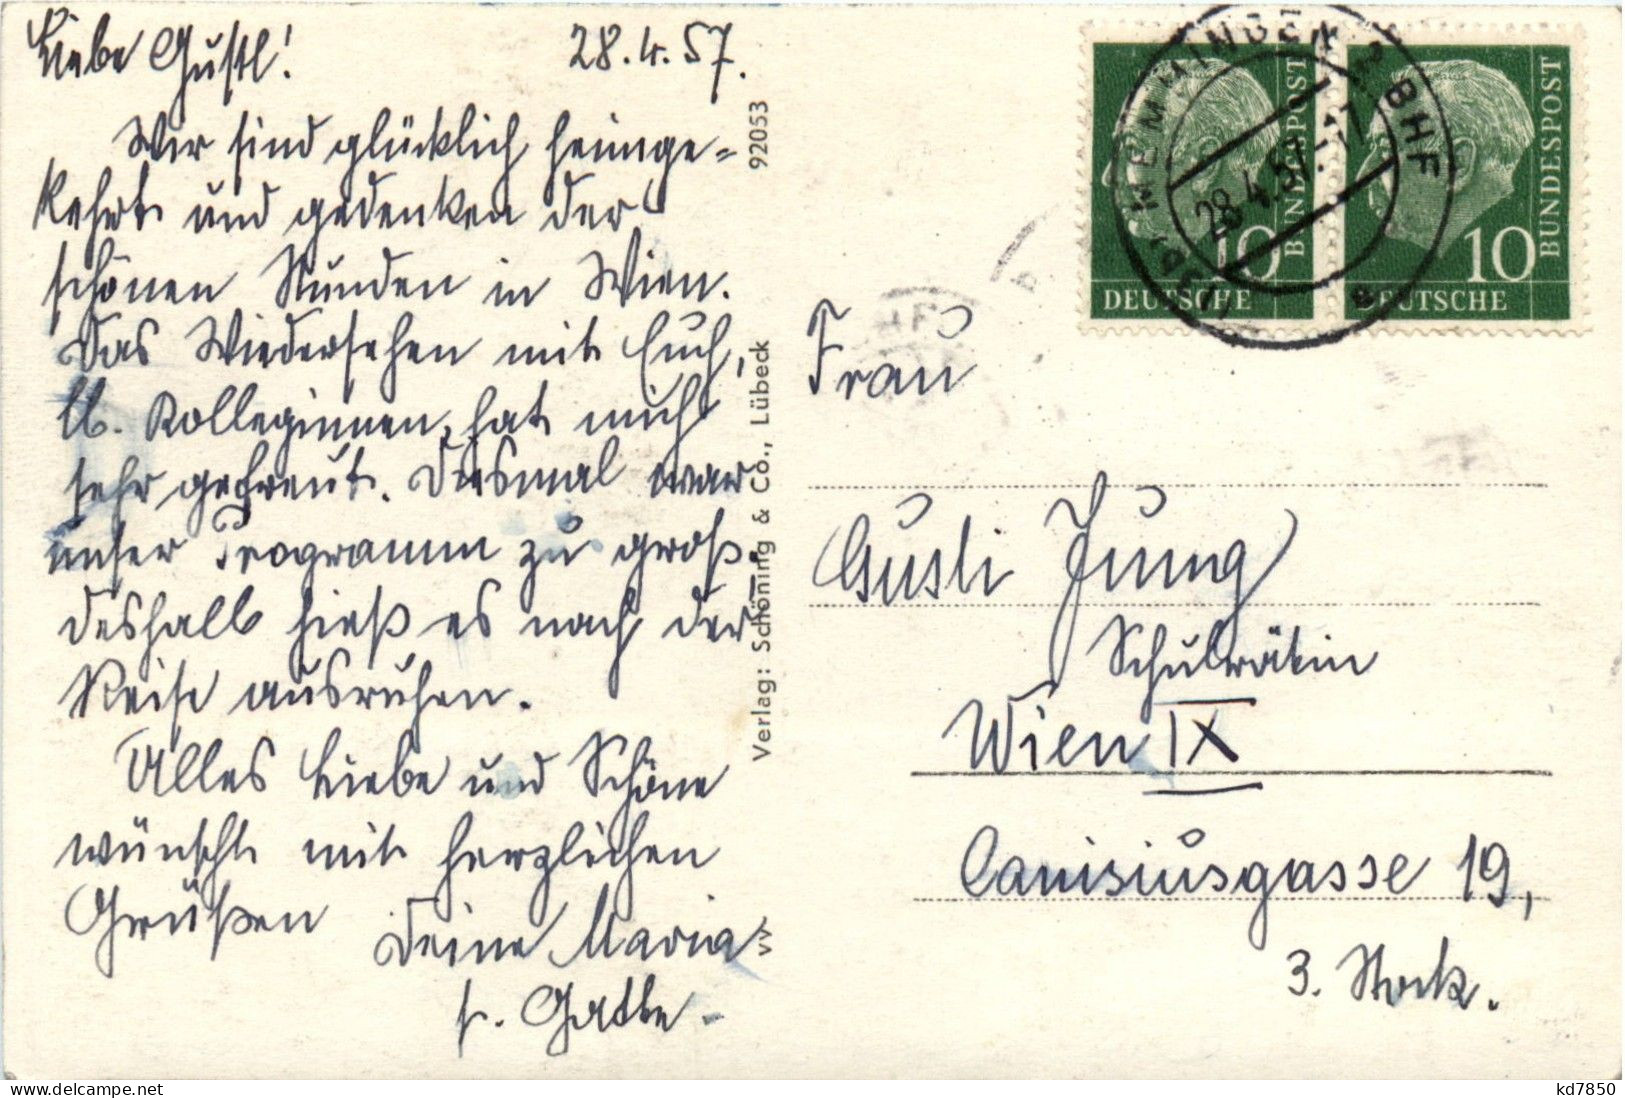 Liebe Gustl!
28.4.57.
Wir sind glücklich heimge=
kehrt und gedenken der
schönen Stunden in Wien.
Das Wiedersehen mit Euch,
lb. Kolleginnen, hat mich
sehr gefreut. Diesmal war
unser Programm zu groß.
deshalb hieß es nach der
Reise ausruhen.
Alles Liebe und Schöne
wünscht mit herzlichen
Grüßen
Deine Maria
u. Gatte.
92053
Verlag: Schöning & Co., Lübeck
MEMMINGEN 2 BHF
28.4.57
10
DEUTSCHE
BUNDESPOST
10
DEUTSCHE
BUNDESPOST
Frau
Gusti Jung
Schulrätin
Wien IX
Canisiusgasse 19,
3. Stock.
www.delcampe.net
kd7850